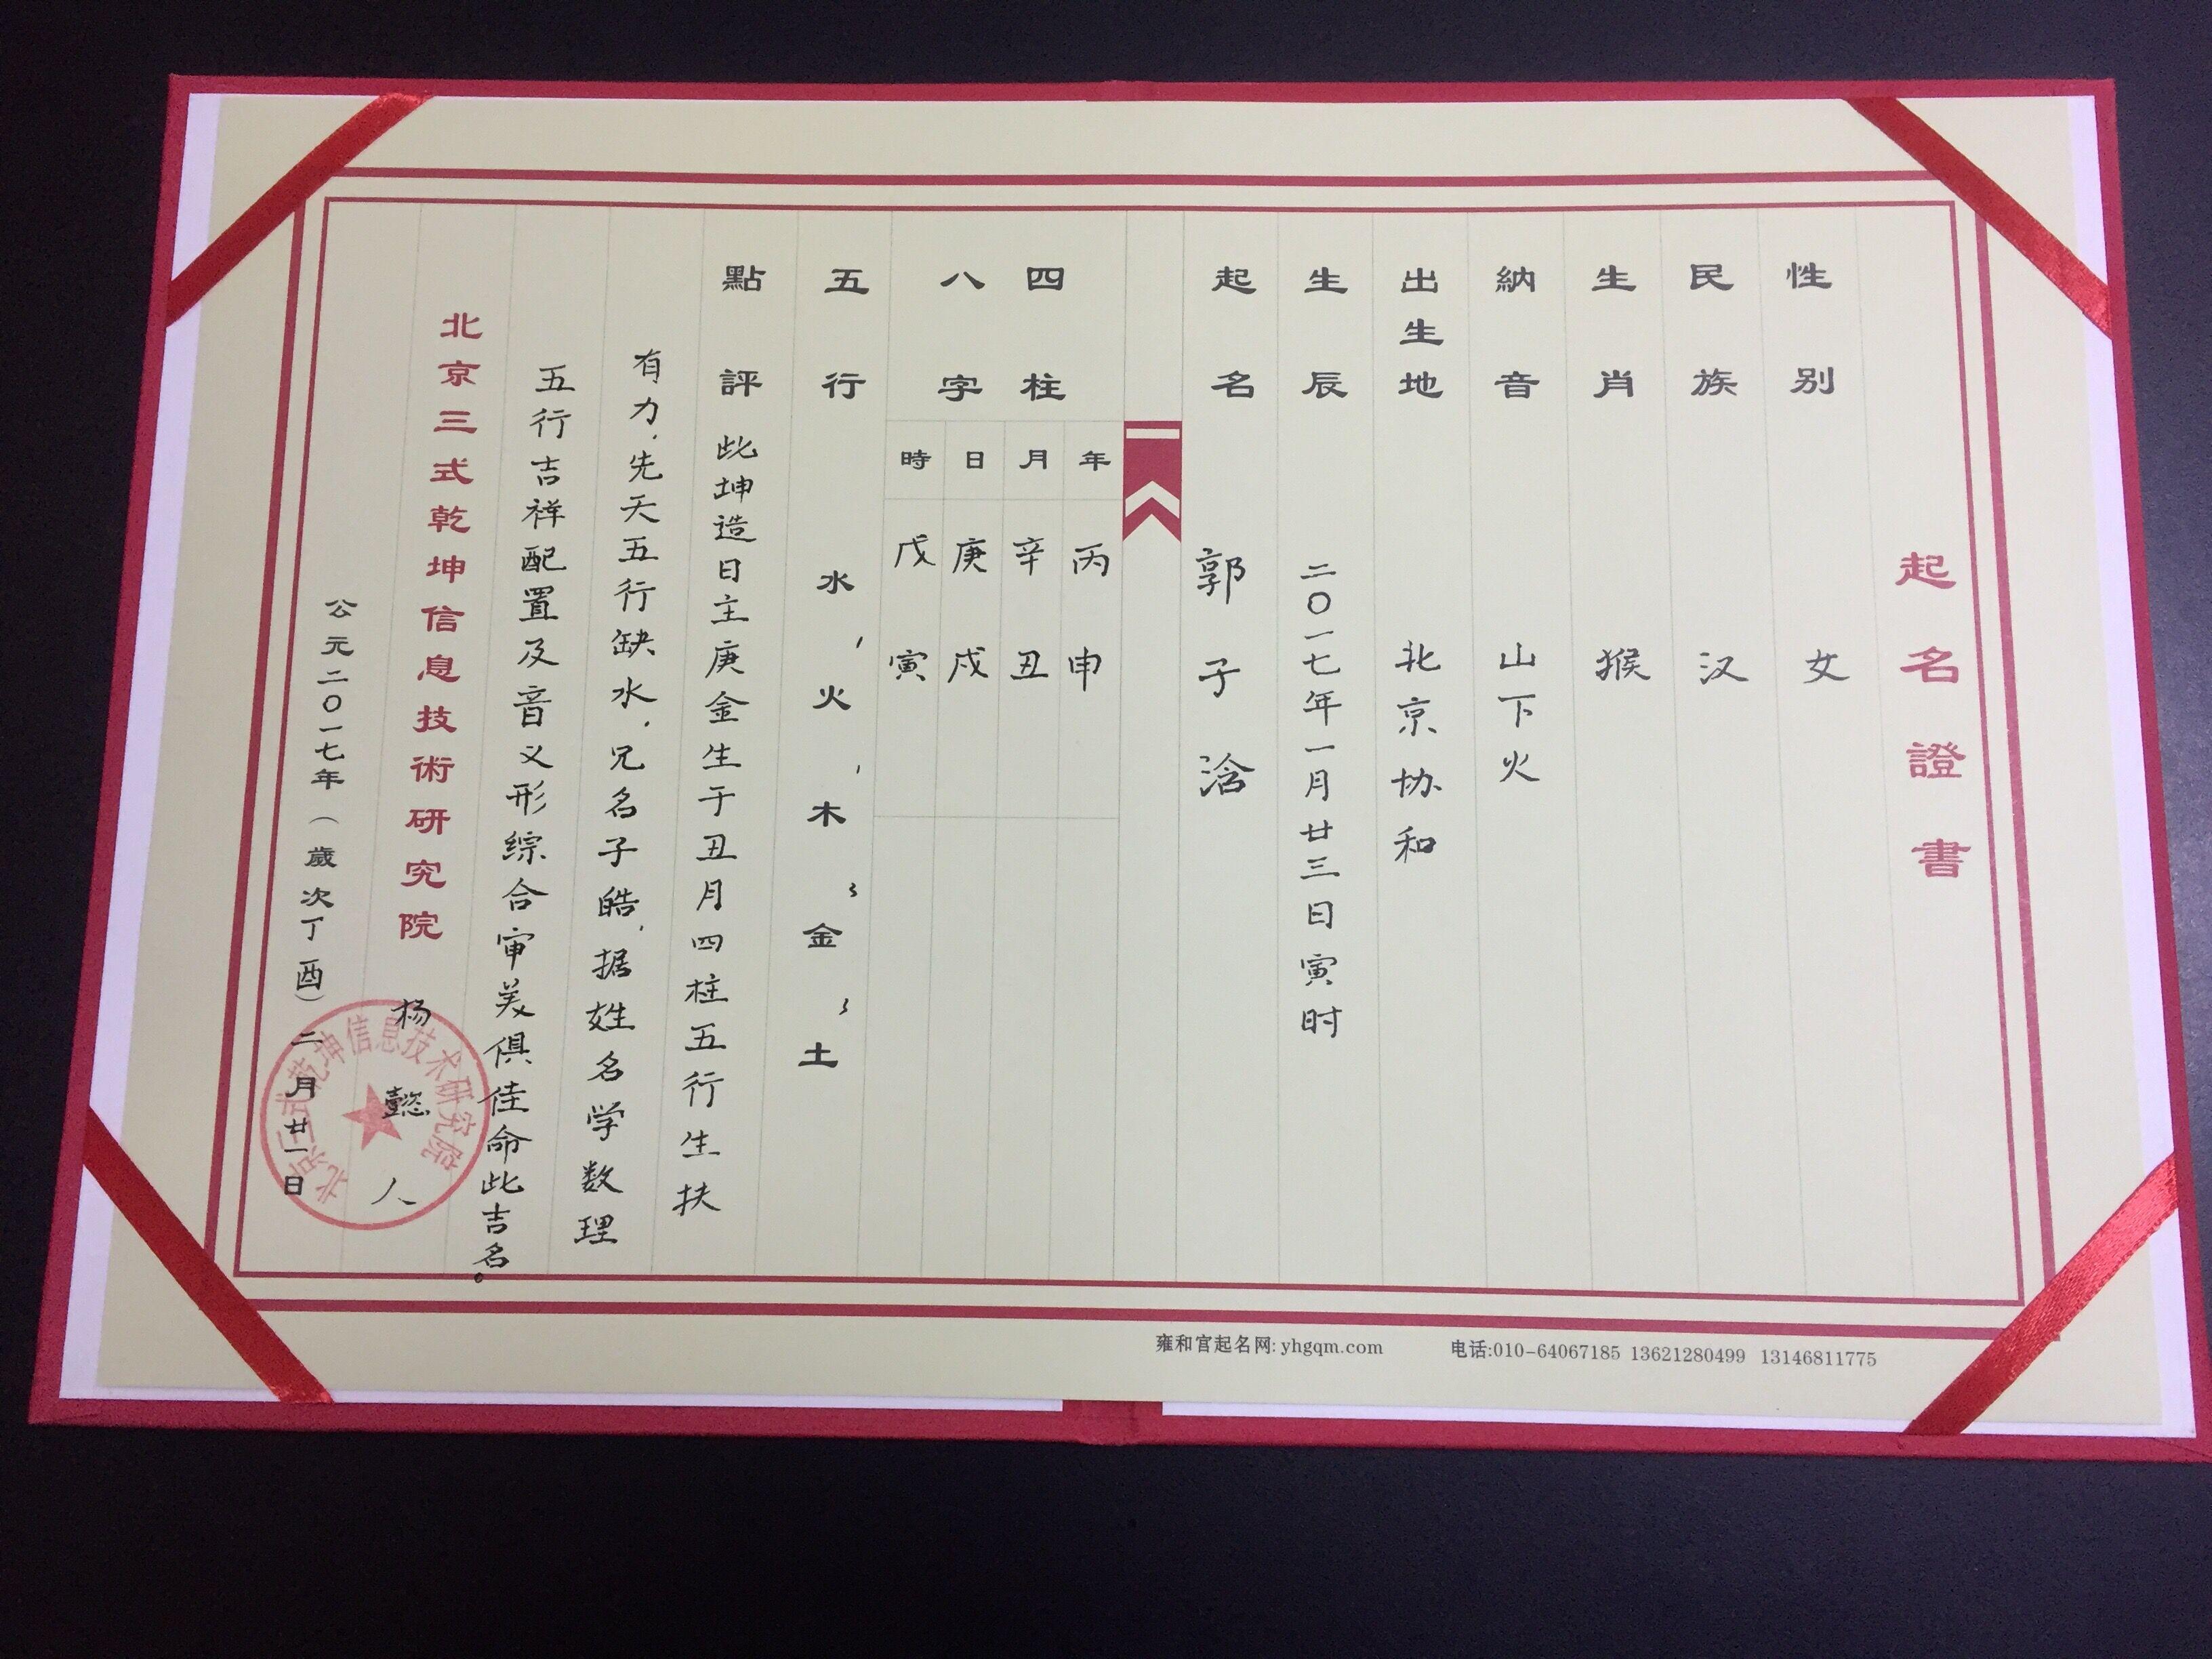 起名證書
性别 女
民族 汉
生肖 猴
納音 山下火
出生地 北京协和
生辰 二〇一七年一月廿三日寅时
起名 郭子浛
四柱八字
年 丙申
月 辛丑
日 庚戌
時 戊寅
五行 水,火,木金土
點評 此坤造日主庚金生于丑月四柱五行生扶
有力,先天五行缺水,兄名子皓,据姓名学数理
五行吉祥配置及音义形综合审美俱佳命此吉名。
北京三式乾坤信息技術研究院 杨懿人
公元二〇一七年(歲次丁酉)二月廿一日
北京三式乾坤信息技术研究院
雍和宫起名网: yhgqm.com 电话:010-64067185 13621280499 13146811775